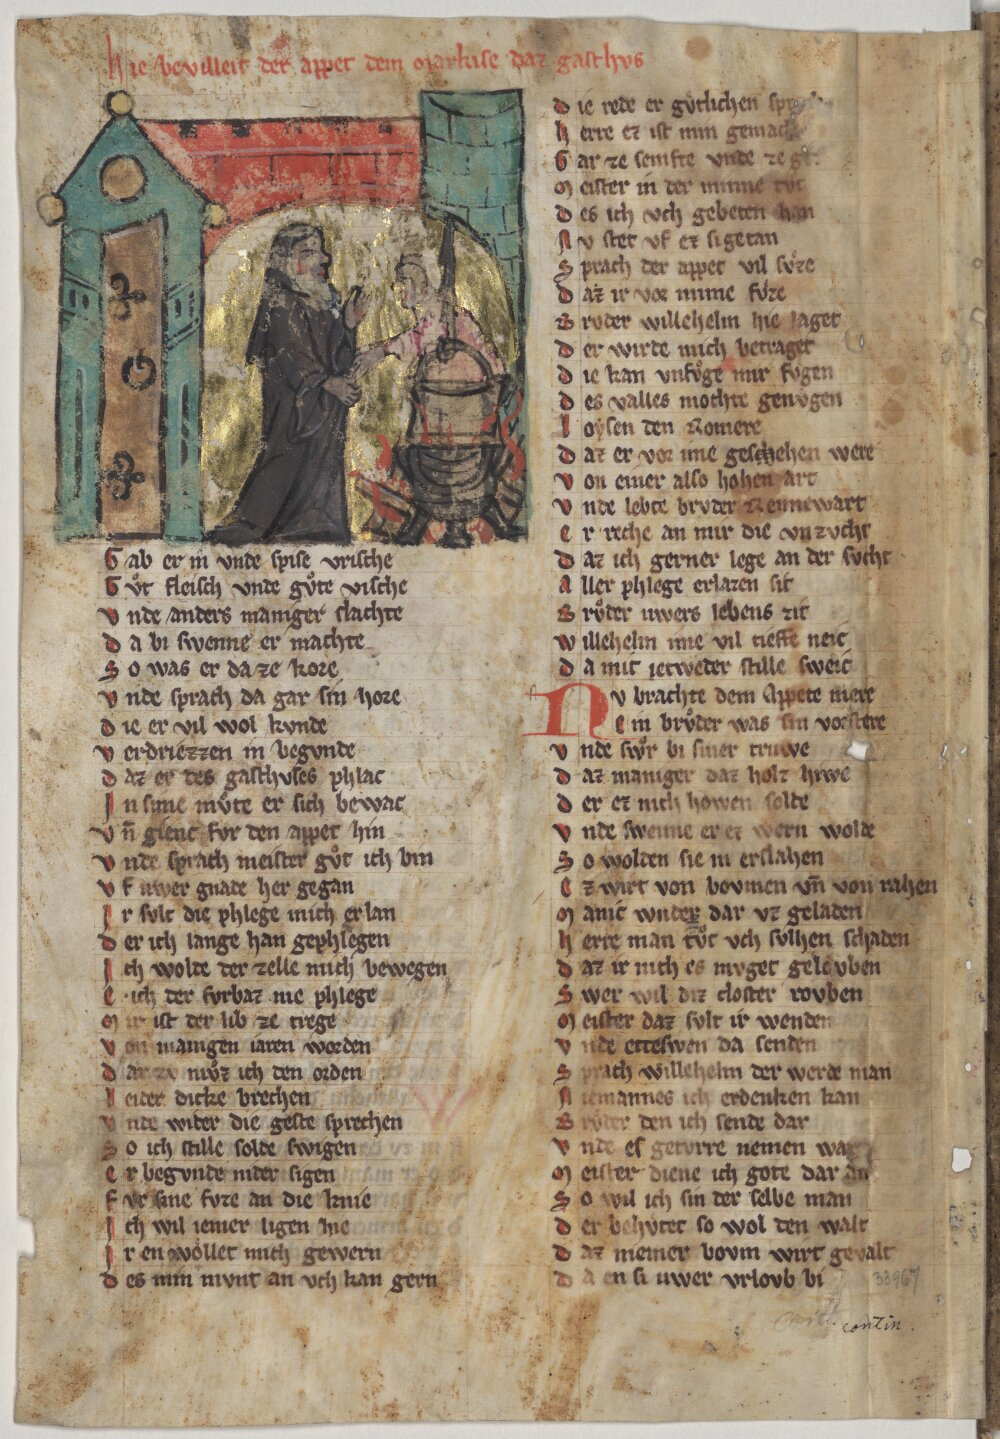 hie bevilleit der appet dem markise daz gasthvs
Gab er in vnde spise vrische
Gůt fleisch vnde gůte vische
vnde anders maniger slachte
da bi swenne er machte
So was er da ze kore
vnde sprach da gar sin hore
die er vil wol kvnde
verdriezzen in begvnde
daz er des gasthvses phlac
In sime můte er sich bewac
vn̄ gienc fvr den appet hin
vnde sprach meister gůt ich bin
vf uwer gnade her gegan
Ir svlt die phlege mich erlan
der ich lange han gephlegen
Ich wolde der zelle mich bewegen
e ich der fvrbaz me phlege
Mir ist der lib ze trege
von manigen iaren worden
dar zv můz ich den orden
leider dicke brechen
vnde wider die geste sprechen
So ich stille solde swigen
er begvnde nider sigen
fvr sine fvze an die knie
Ich wil iemer ligen hie
Ir en wöllet mich gewern
des min mvnt an vch kan gern
die rede er gůtlichen
herre ez ist min gemach
Gar ze semfte vnde ze
Meister in der minne tůt
des ich vch gebeten han
Nv stet vf ez si getan
Sprach der appet vil sůze
daz ir vor mime fůze
Brvder willehelm hie laget
der wirde mich betraget
die kan vnfůge mir fůgen
des valles mochte genvgen
loysen den Romere
daz er vor ime geschehen were
von einer also hohen art
vnde lebte brvder Rennewart
er reche an mir die vnzvcht
daz ich gerner lege an der svcht
aller phlege erlazen sit
Brůder uwers lebens zit
willehelm ime vil tieffe neic
da mit ietweder stille sweic
Nv brachte dem Appete mere
ein brůder was sin vorstere
vnde swůr bi siner truwe
daz maniger daz holz hiwe
der ez nich howen solde
vnde swenne er ez wern wolde
So wolden sie in erslahen
ez wirt von bovmen vn̄ von rahen
Manic wnder dar vz geladen
herre man tůt vch svlhen schaden
daz ir mich es mvget gelovben
Swer wil diz closter rovben
Meister daz svlt ir wenden
vnde etteswen da senden
Sprach willehelm der werde man
Niemannes ich erdenken kan
Brvder den ich sende dar
vnde es getvrre nemen war
Meister diene ich gote dar an
So wil ich sin der selbe man
der behvtet so wol den walt
daz meiner bovm wirt gevalt
da en si uwer vrlovb bi
33967
contin.